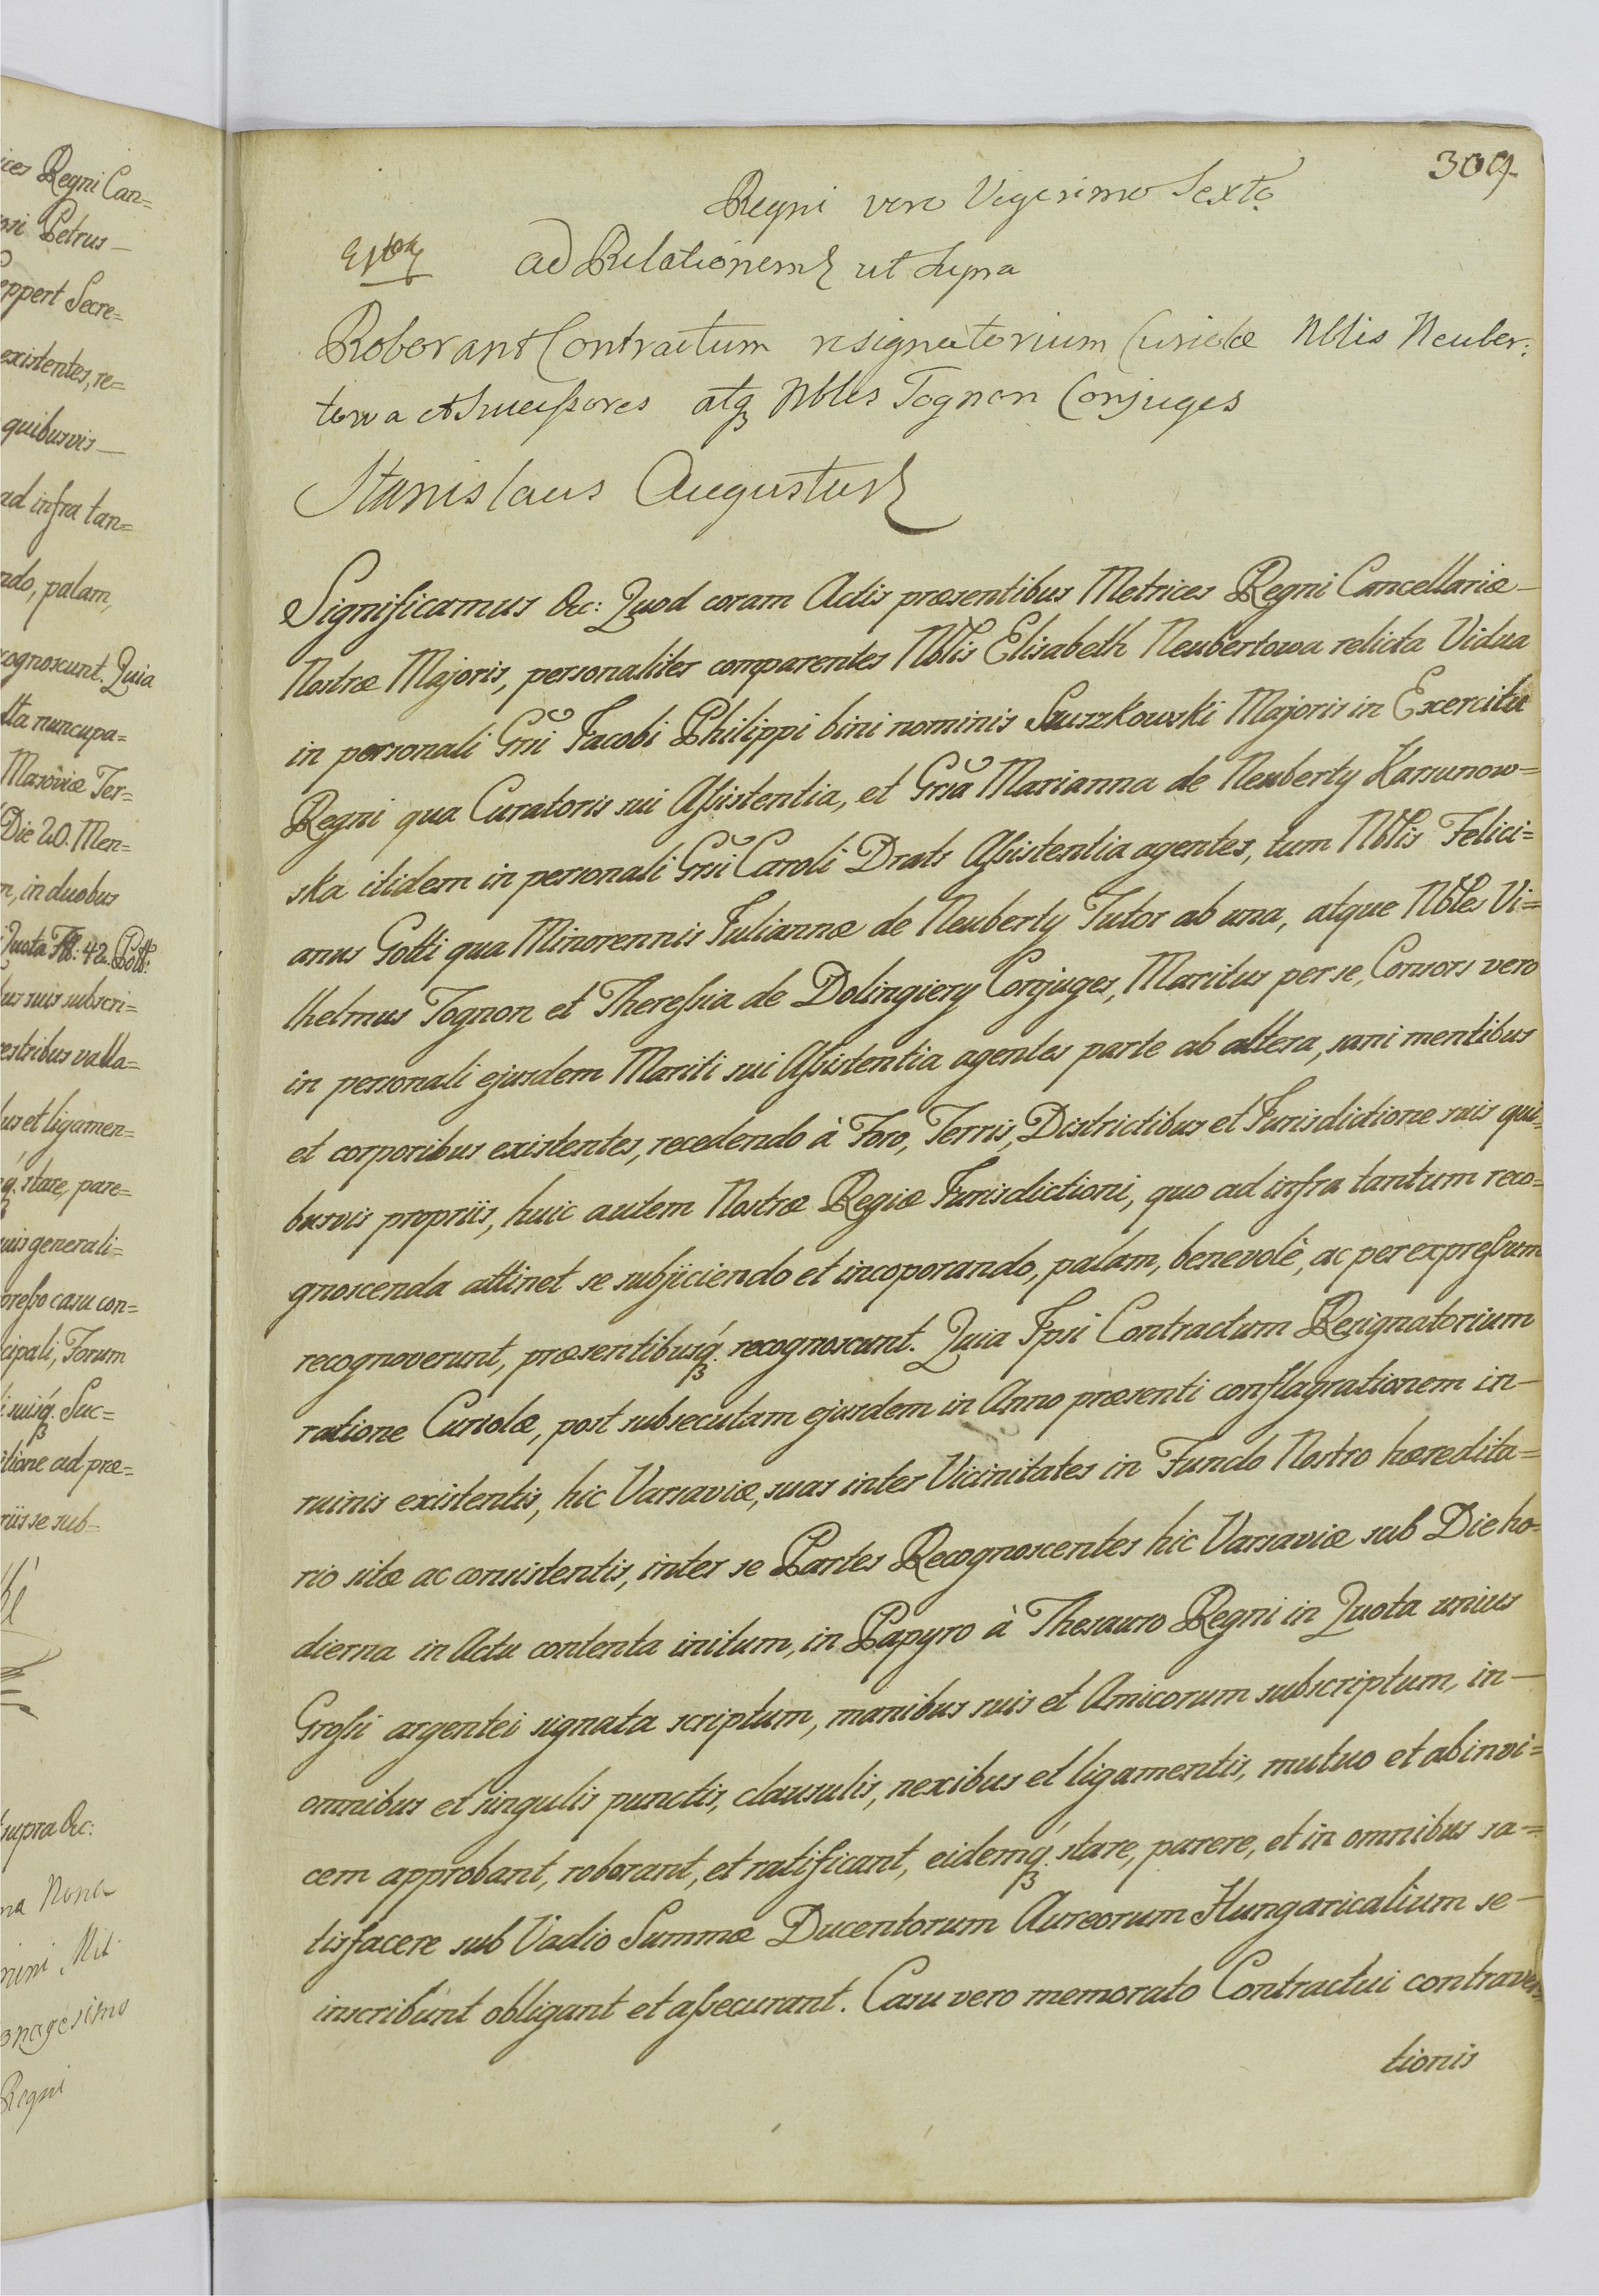 ices Regni Can=
Petrus —
eppert Secre=
existentes, re=
quibusvis —
ad infra tan=
ndo, palam,
cognoscunt. Quia
tta nuncupa=
Masoviæ Ter=
Die 20. Men=
m, in duobus
Quota Fl: 42. Poll:
bus suis subscri=
estribus valla=
us et ligamen=
stare, pare=
suis generali=
presso casu con=
cipali, Forum
suisq́. Suc=
itione ad præ=
riis se sub=
supra &c:
na Nona
mini Mil
onagesimo
Regni
309.
Regni vero Vigesimo Sexto
ad Relationem ut supra
Roborant Contractum resignatorium Curiolæ Nblis Neuber:
towa et Successores atq Nbles Tognon Conjuges
Stanislaus Augustus
Significamus &c: Quod coram Actis præsentibus Metrices Regni Cancellariæ —
Nostræ Majoris, personaliter comparentes Nblis Elisabeth Neubertowa relicta Vidua
in personali Gsi Jacobi Philippi bini nominis Szuszkowski Majoris in Exercitu
Regni qua Curatoris sui Assistentia, et Gsa Marianna de Neuberty Karsunow=
ska itidem in personali Gsi Caroli Drats Assistentia agentes, tum Nblis Felici=
anus Gotti qua Minorennis Juliannæ de Neuberty Tutor ab una, atque Nbles Vi=
lhelmus Tognon et Theressia de Dolingiery Conjuges, Maritus per se, Consors vero
in personali ejusdem Mariti sui Assistentia agentes parte ab altera, sani mentibus
et corporibus existentes, recedendo à Foro, Terris, Districtibus et Jurisdictione suis qui=
busvis propriis, huic autem Nostræ Regiæ Jurisdictioni, quo ad infra tantum reco=
gnoscenda attinet se subjiciendo et incoporando, palam, benevolè, ac per expressum
recognoverunt, præsentibusq́. recognoscunt. Quia Ipsi Contractum Resignatorium
ratione Curiolæ, post subsecutam ejusdem in Anno præsenti conflagrationem in —
ruinis existentis, hic Varsaviæ, suas inter Vicinitates in Fundo Nostro hæredita=
rio sitæ ac consistentis, inter se Partes Recognoscentes hic Varsaviæ sub Die ho=
dierna in Actu contenta initum, in Papyro à Thesauro Regni in Quota unius
Grossi argentei signata scriptum, manibus suis et Amicorum subscriptum, in —
omnibus et singulis punctis, clausulis, nexibus et ligamentis, mutuo et ab invi=
cem approbant, roborant, et ratificant, eidemq́. stare, parere, et in omnibus sa=
tisfacere sub Vadio Summæ Ducentorum Aureorum Hungaricalium se —
inscribunt obligant et assecurant. Casu vero memorato Contractui contraven=
tionis